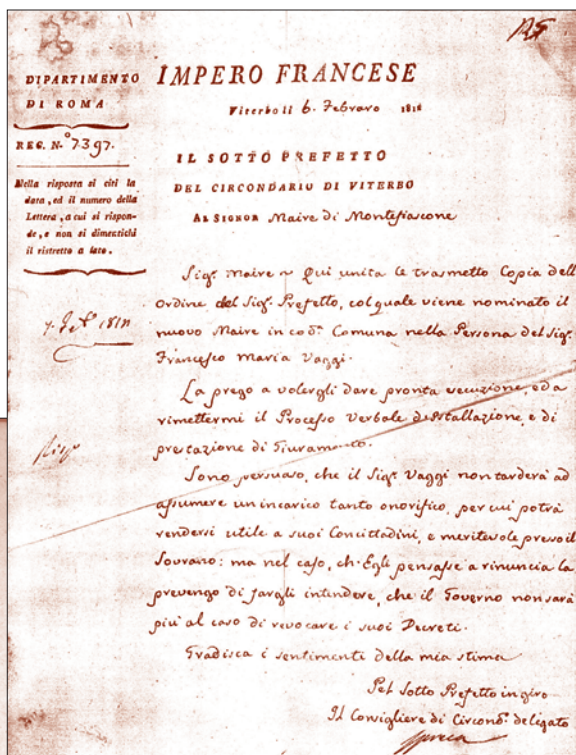 DIPARTIMENTO
DI ROMA
REG. N.º 7397.
Nella risposta si citi la
data, ed il numero della
Lettera, a cui si rispon-
de, e non si dimentichi
il ristretto a lato.
IMPERO FRANCESE
Viterbo li 6. Febraro 181
IL SOTTO PREFETTO
DEL CIRCONDARIO DI VITERBO
AL SIGNOR Maire di Montefiascone
Sigr. Maire ~ Qui unita le trasmetto Copia dell'
Ordine del Sigr. Prefetto, col quale viene nominato il
nuovo Maire in cod. Comuna nella Persona del Sigr.
Francesco Maria Vaggi.
La prego a volergli dare pronta esecuzione, ed a
rimettermi il Processo Verbale d'Istallazione, e di
prestazione di Giuramento.
Sono persuaso, che il Sigr. Vaggi non tarderà ad
assumere un incarico tanto onorifico, per cui potrà
rendersi utile a suoi Concittadini, e meritevole presso il
Sovrano: ma nel caso, ch'Egli pensasse a rinuncia la
prevengo di fargli intendere, che il Governo non sarà
più al caso di revocare i suoi Decreti.
Gradisca i sentimenti della mia stima
Pel Sotto Prefetto in giro
Il Consigliere di Circond. delegato